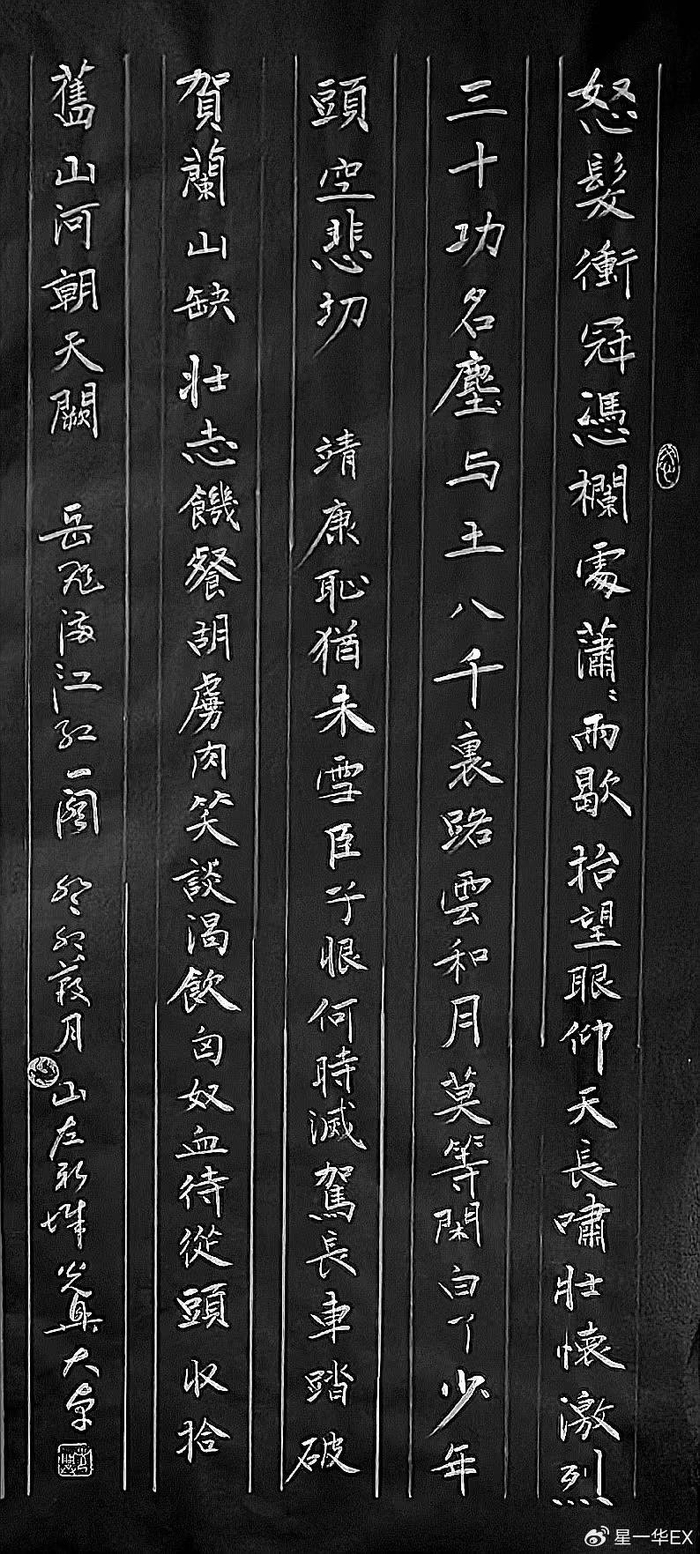 怒髮衝冠憑欄處瀟〻雨歇抬望眼仰天長嘯壯懷激烈
三十功名塵与土八千裏路雲和月莫等閑白了少年
頭空悲切 靖康恥猶未雪臣子恨何時滅駕長車踏破
賀蘭山缺壯志饑餐胡虜肉笑談渴飲匈奴血待從頭收拾
舊山河朝天闕 岳飛滿江紅一闋 葭月 山左
星一华EX